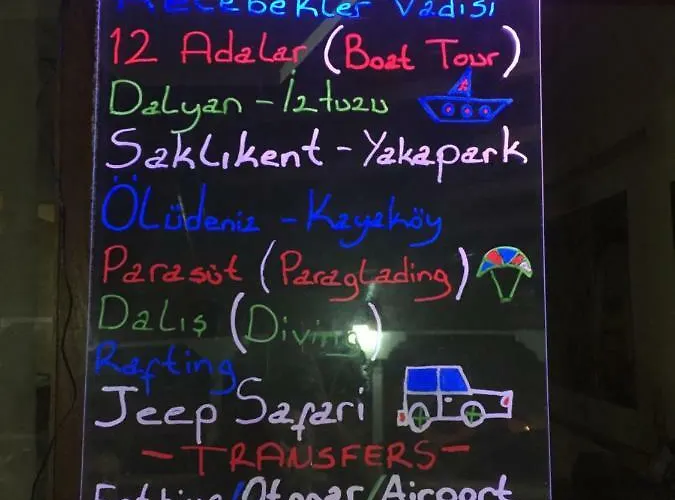 Kelebekler Vadisi
12 Adalar (Boat Tour)
Dalyan - İztuzu
Saklıkent - Yakapark
Ölüdeniz - Kayaköy
Paraşüt (Paraglading)
Dalış (Diving)
Rafting
Jeep Safari
- TRANSFERS -
Fethiye/Otogar/Airport